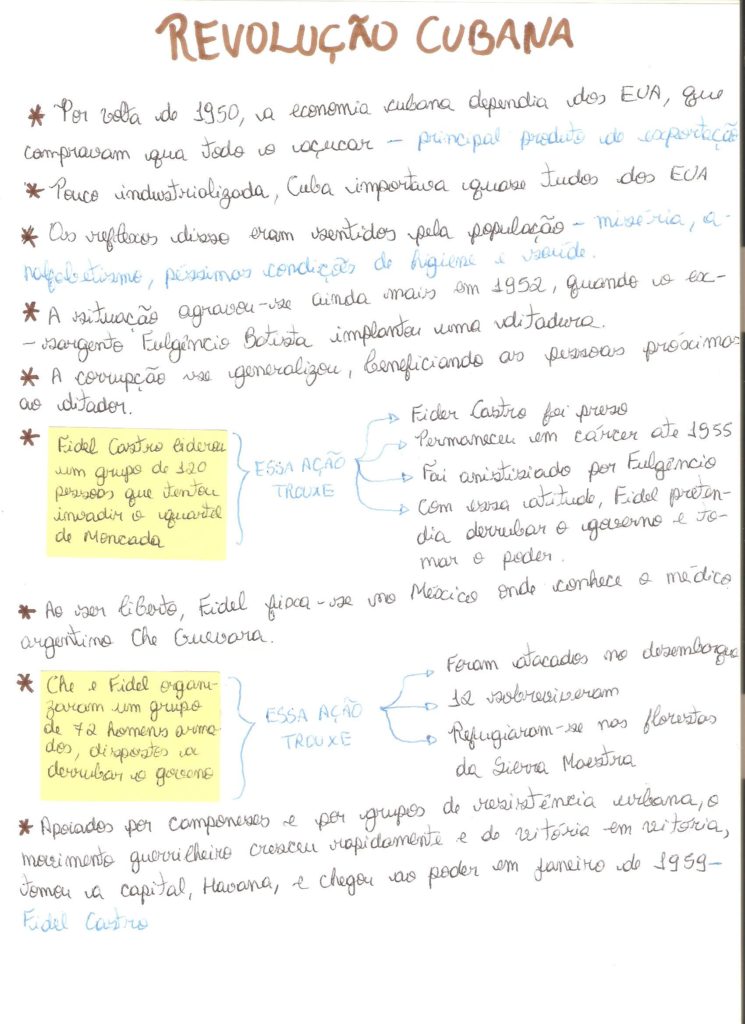 REVOLUÇÃO CUBANA
* Por volta de 1950, a economia cubana dependia dos EUA, que
compravam qua todo o açucar - principal produto de exportação
* Pouco industrializada, Cuba importava quase tudos dos EUA
* Os reflexos disso eram sentidos pela população - miséria, a-
nalfabetismo, péssimas condições de higiene e saúde.
* A situação agravou-se ainda mais em 1952, quando o ex-
-sargento Fulgêncio Batista implantou uma ditadura.
* A corrupção se generalizou, beneficiando as pessoas próximas
ao ditador.
* Fidel Castro liderou
um grupo de 120
pessoas que tentou
invadir o quartel
de Moncada
ESSA AÇÃO
TROUXE
Fider Castro foi preso
Permaneceu em cárcer ate 1955
Foi anistisiado por Fulgêncio
Com essa atitude, Fidel preten-
dia derrubar o governo e to-
mar o poder.
* Ao ser liberto, Fidel fixa-se no México onde conhece o médico
argentino Che Guevara.
* Che e Fidel organi-
zaram um grupo
de 72 homens arma-
dos, dispostos a
derrubar o governo
ESSA AÇÃO
TROUXE
Foram atacados no desembarque
12 sobreviveram
Refugiaram-se nas florestas
da Sierra Maestra
* Apoiados por camponeses e por grupos de resistência urbana, o
movimento guerrilheiro cresceu rapidamente e de vitória em vitória,
tomou a capital, Havana, e chegou ao poder em janeiro de 1959-
Fidel Castro